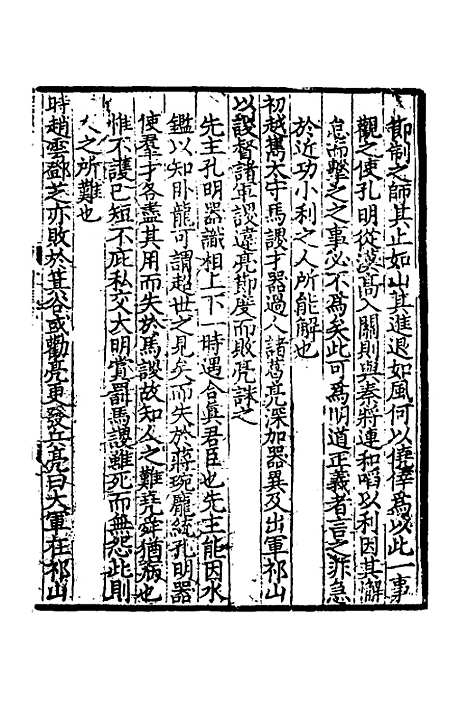 節制之師其止如山其進退如風何以僥倖爲以此一事
觀之使孔明從漢高入關則與秦將連和啗以利因其懈
怠而擊之之事必不爲矣此可爲明道正義者言之非急
於近功小利之人所能解也
初越嶲太守馬謖才器過人諸葛亮深加器異及出軍祁山
以謖督諸軍謖違亮節度而敗亮誅之
先主孔明器識相上下一時遇合眞君臣也先主能因水
鑑以知卧龍可謂超世之見矣而失於蔣琬龐統孔明器
使羣才各盡其用而失於馬謖故知人之難堯舜猶病也
惟不護已短不庇私交大明賞罰馬謖雖死而無怨此則
人之所難也
時趙雲鄧芝亦敗於箕谷或勸亮更發兵亮曰大軍在祁山